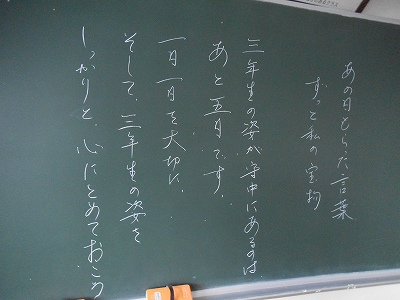 あの日もらった言葉
ずっと私の宝物
三年生の姿が守中にあるのは
あと五日です。
一日一日を大切に、
そして、三年生の姿を
しっかりと、心にとめておこう